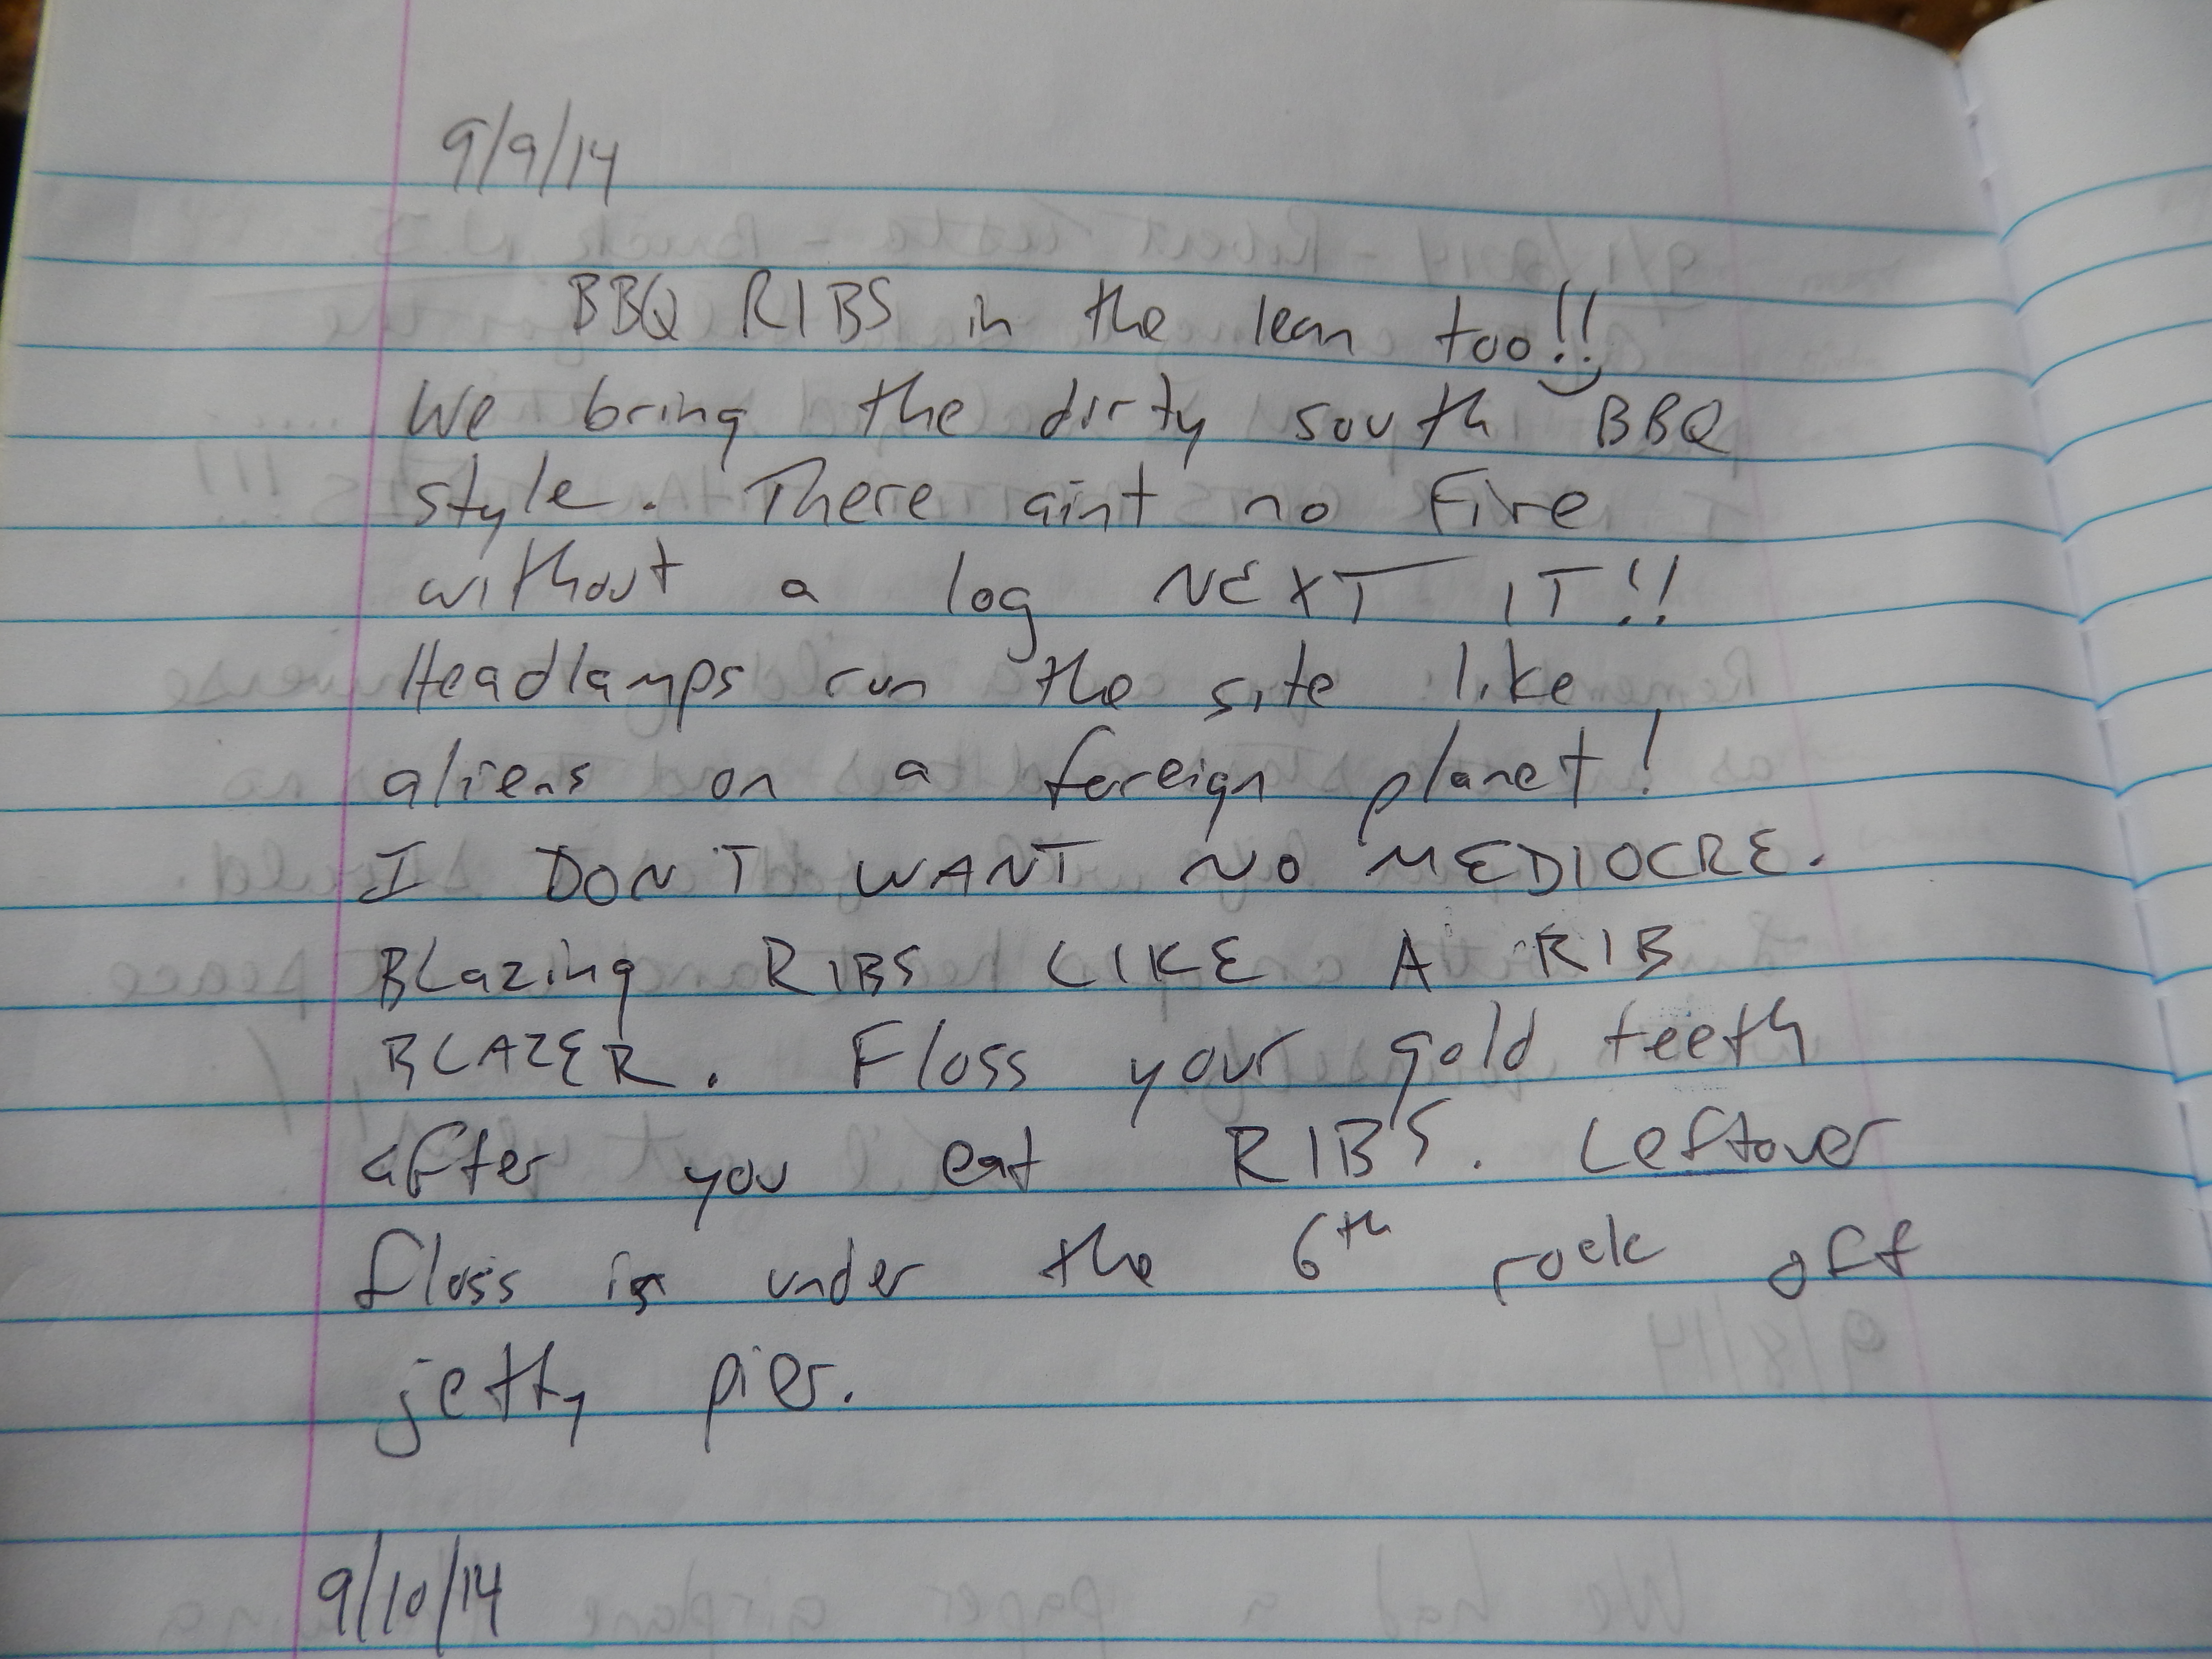 9/9/14
BBQ RIBS in the lean too!!
We bring the dirty south BBQ
style. There aint no Fire
without a log NEXT IT!!
Headlamps run the site like
aliens on a foreign planet!
I DON'T WANT NO MEDIOCRE.
BLazing RIBS LIKE A RIB
BLAZER. Floss your gold teeth
after you eat RIBS. Leftover
floss is under the 6th rock off
jetty pier.
9/10/14